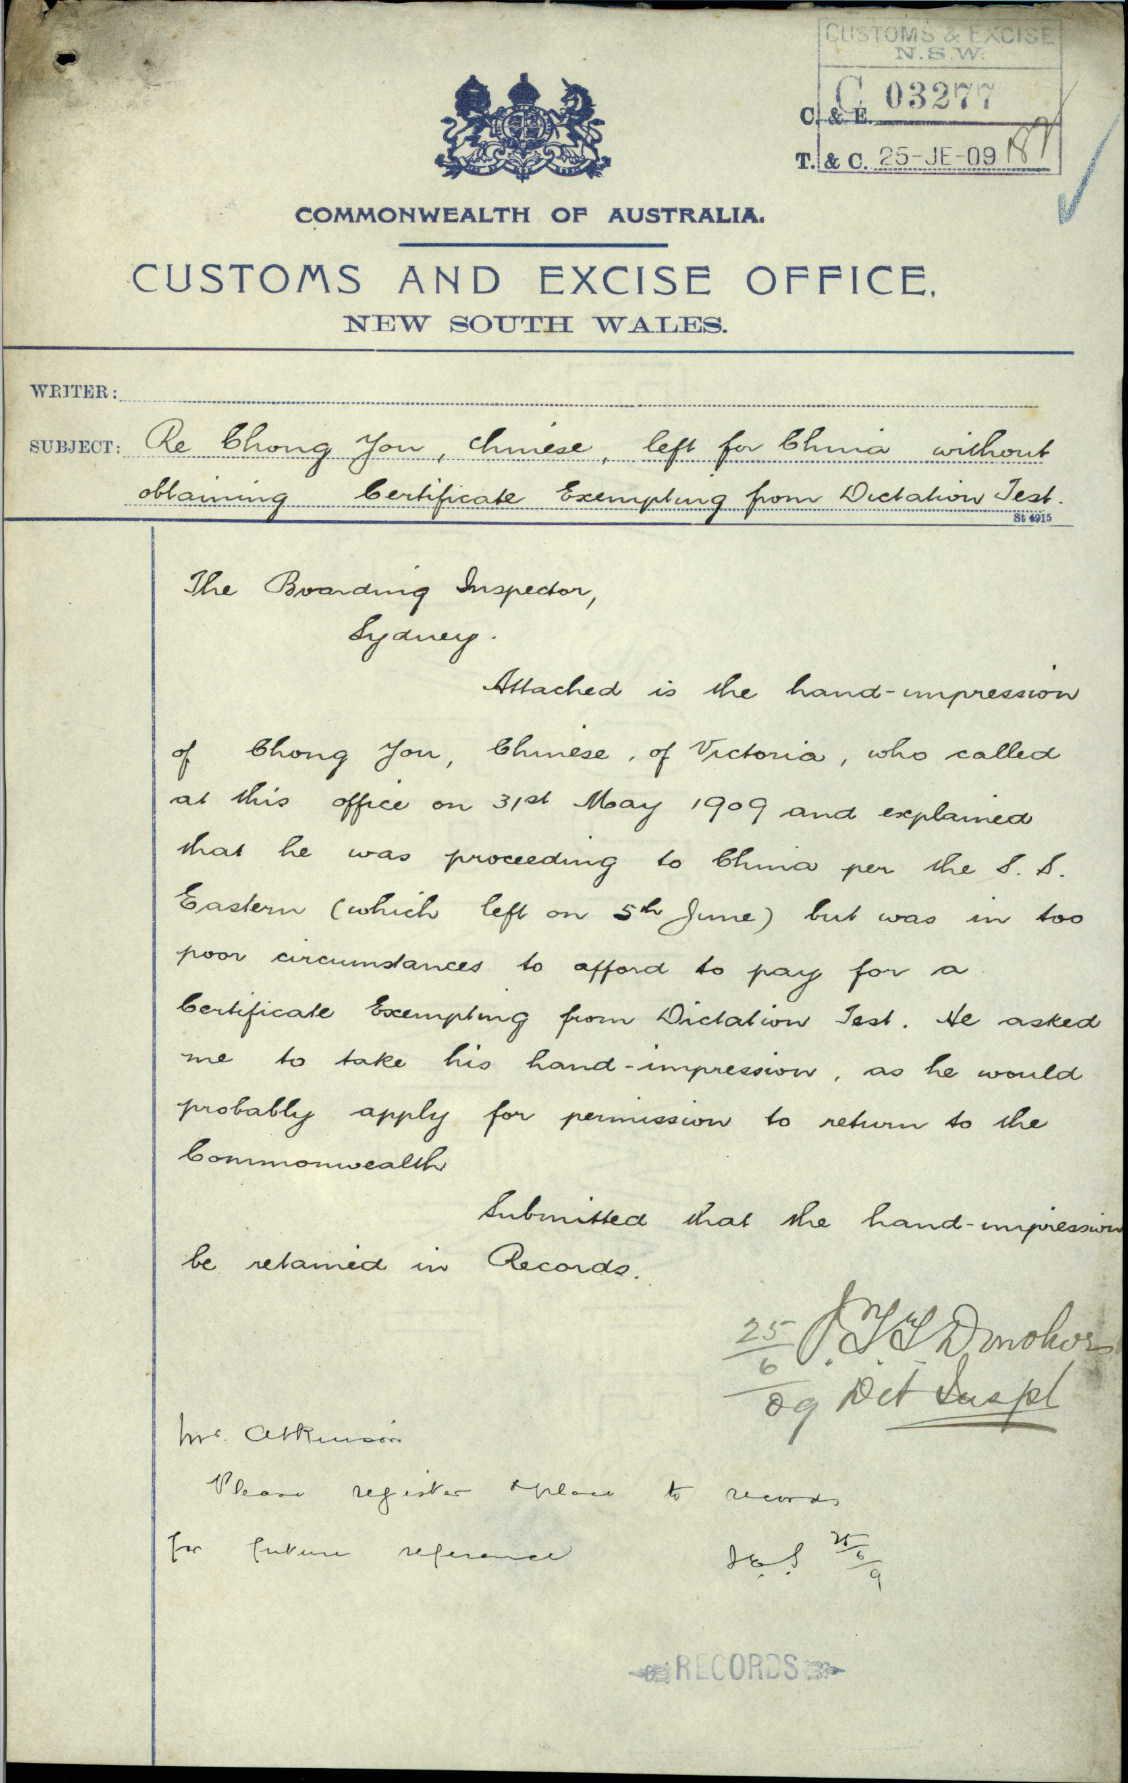 CUSTOMS & EXCISE
N.S.W.
C 03277
C. & E.
T. & C. 25-JE-09
COMMONWEALTH OF AUSTRALIA.
CUSTOMS AND EXCISE OFFICE,
NEW SOUTH WALES.
WRITER:
SUBJECT: Re Chong You, Chinese, left for China without
obtaining Certificate Exempting from Dictation Test.
St 4915
The Boarding Inspector,
Sydney.
Attached is the hand-impression
of Chong You, Chinese, of Victoria, who called
at this office on 31st May 1909 and explained
that he was proceeding to China per the S. S.
Eastern (which left on 5th June) but was in too
poor circumstances to afford to pay for a
Certificate Exempting from Dictation Test. He asked
me to take his hand-impression, as he would
probably apply for permission to return to the
Commonwealth
Submitted that the hand-impression
be retained in Records.
25/6/09 J.T.T. Donohoe
Det Inspt
Mr. Atkinson
Please register & place to records
for future reference
25/6/9
RECORDS